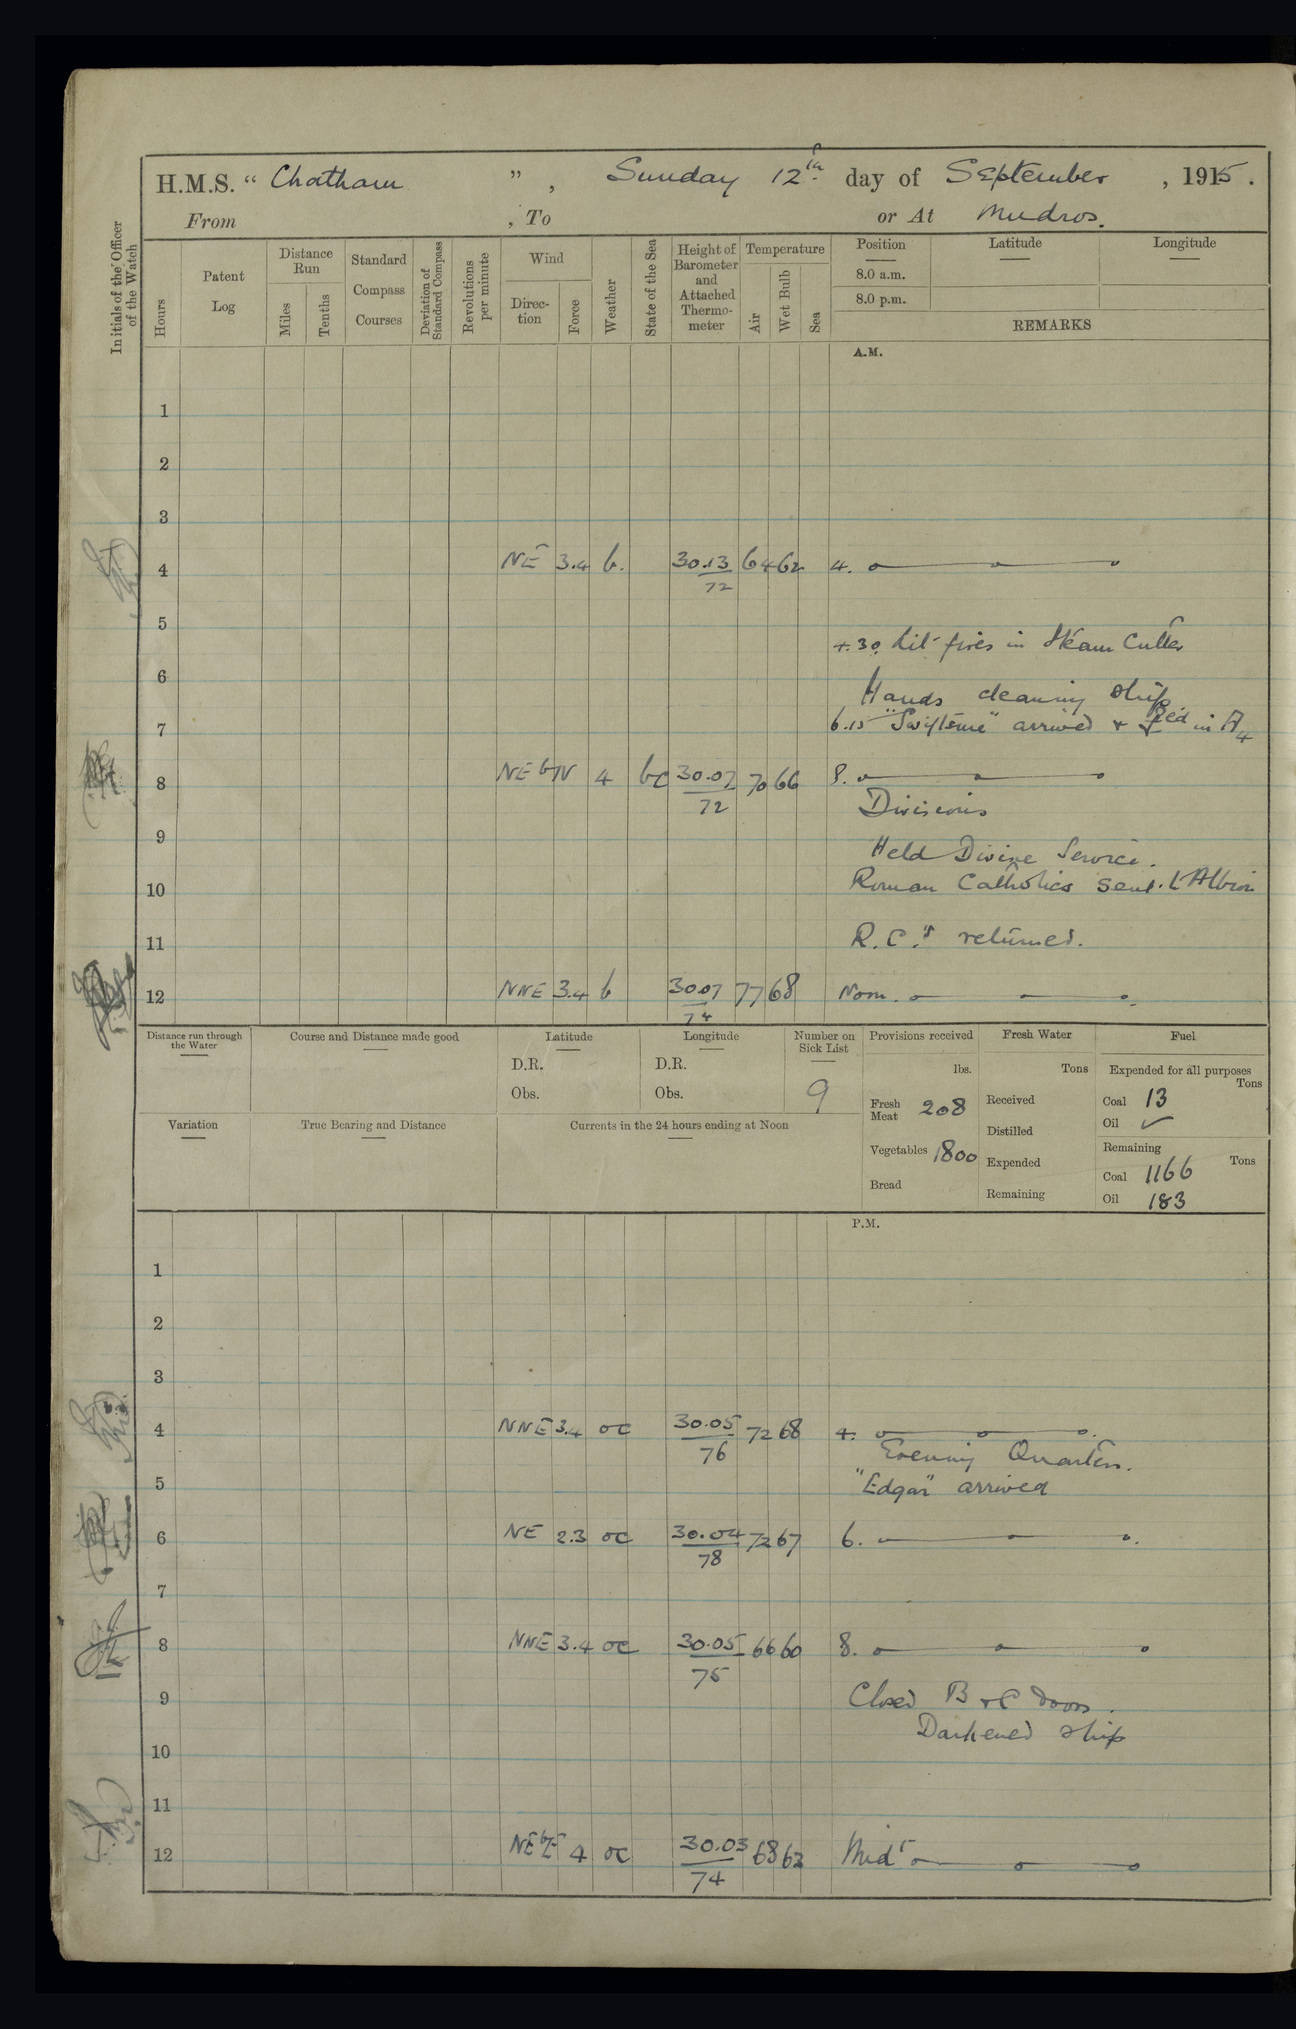 H.M.S. “ Chatham ” , Sunday 12th day of September , 1915 .
From , To or At Mudros.
Initials of the Officer of the Watch
Hours
Patent Log
Distance Run
Miles
Tenths
Standard Compass Courses
Deviation of Standard Compass
Revolutions per minute
Wind
Direc-tion
Force
Weather
State of the Sea
Height of Barometer and Attached Thermo-meter
Temperature
Air
Wet Bulb
Sea
Position
Latitude
Longitude
8.0 a.m.
8.0 p.m.
REMARKS
A.M.
1
2
3
4 NE 3.4 b. 30.13 64 62 4.
72
5
4.30 Lit fires in Steam Cutter
6
Hands cleaning ship
6.15 "Swiftsure" arrived & in A4
7
8 NE b N 4 bc 30.07 70 66 8.
72
Divisions
9
Held Divine Service.
10 Roman Catholics sent. Albion
11 R.C.s returned.
12 NNE 3.4 b 30.07 77 68 Noon.
74
Distance run through the Water
Course and Distance made good
Latitude
D.R.
Obs.
Longitude
D.R.
Obs.
Number on Sick List
9
Provisions received
lbs.
Fresh Meat 208
Vegetables 1800
Bread
Fresh Water
Tons
Received
Distilled
Expended
Remaining
Fuel
Expended for all purposes
Tons
Coal 13
Oil ✓
Remaining
Tons
Coal 1166
Oil 183
Variation
True Bearing and Distance
Currents in the 24 hours ending at Noon
P.M.
1
2
3
4 NNE 3.4 oc 30.05 72 68 4.
76
Evening Quarters.
5 "Edgar" arrived
6 NE 2.3 oc 30.04 72 67 6.
78
7
8 NNE 3.4 oc 30.05 66 60 8.
75
9 Closed B & C doors.
Darkened ship
10
11
12 NE b E 4 oc 30.03 68 63 Midt
74